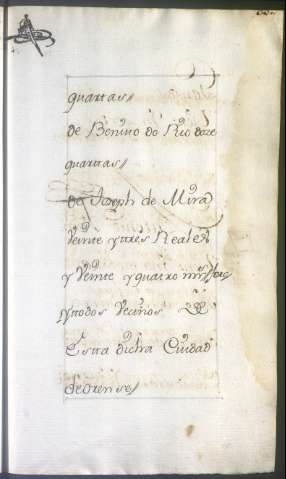 quartas
de Benito do Rio doze
quartas
de Joseph de Mira
Veinte ytres Reales
y Veinte yquatro mrs
ytodos Vecinos
Esta dicha Ciudad
deorense